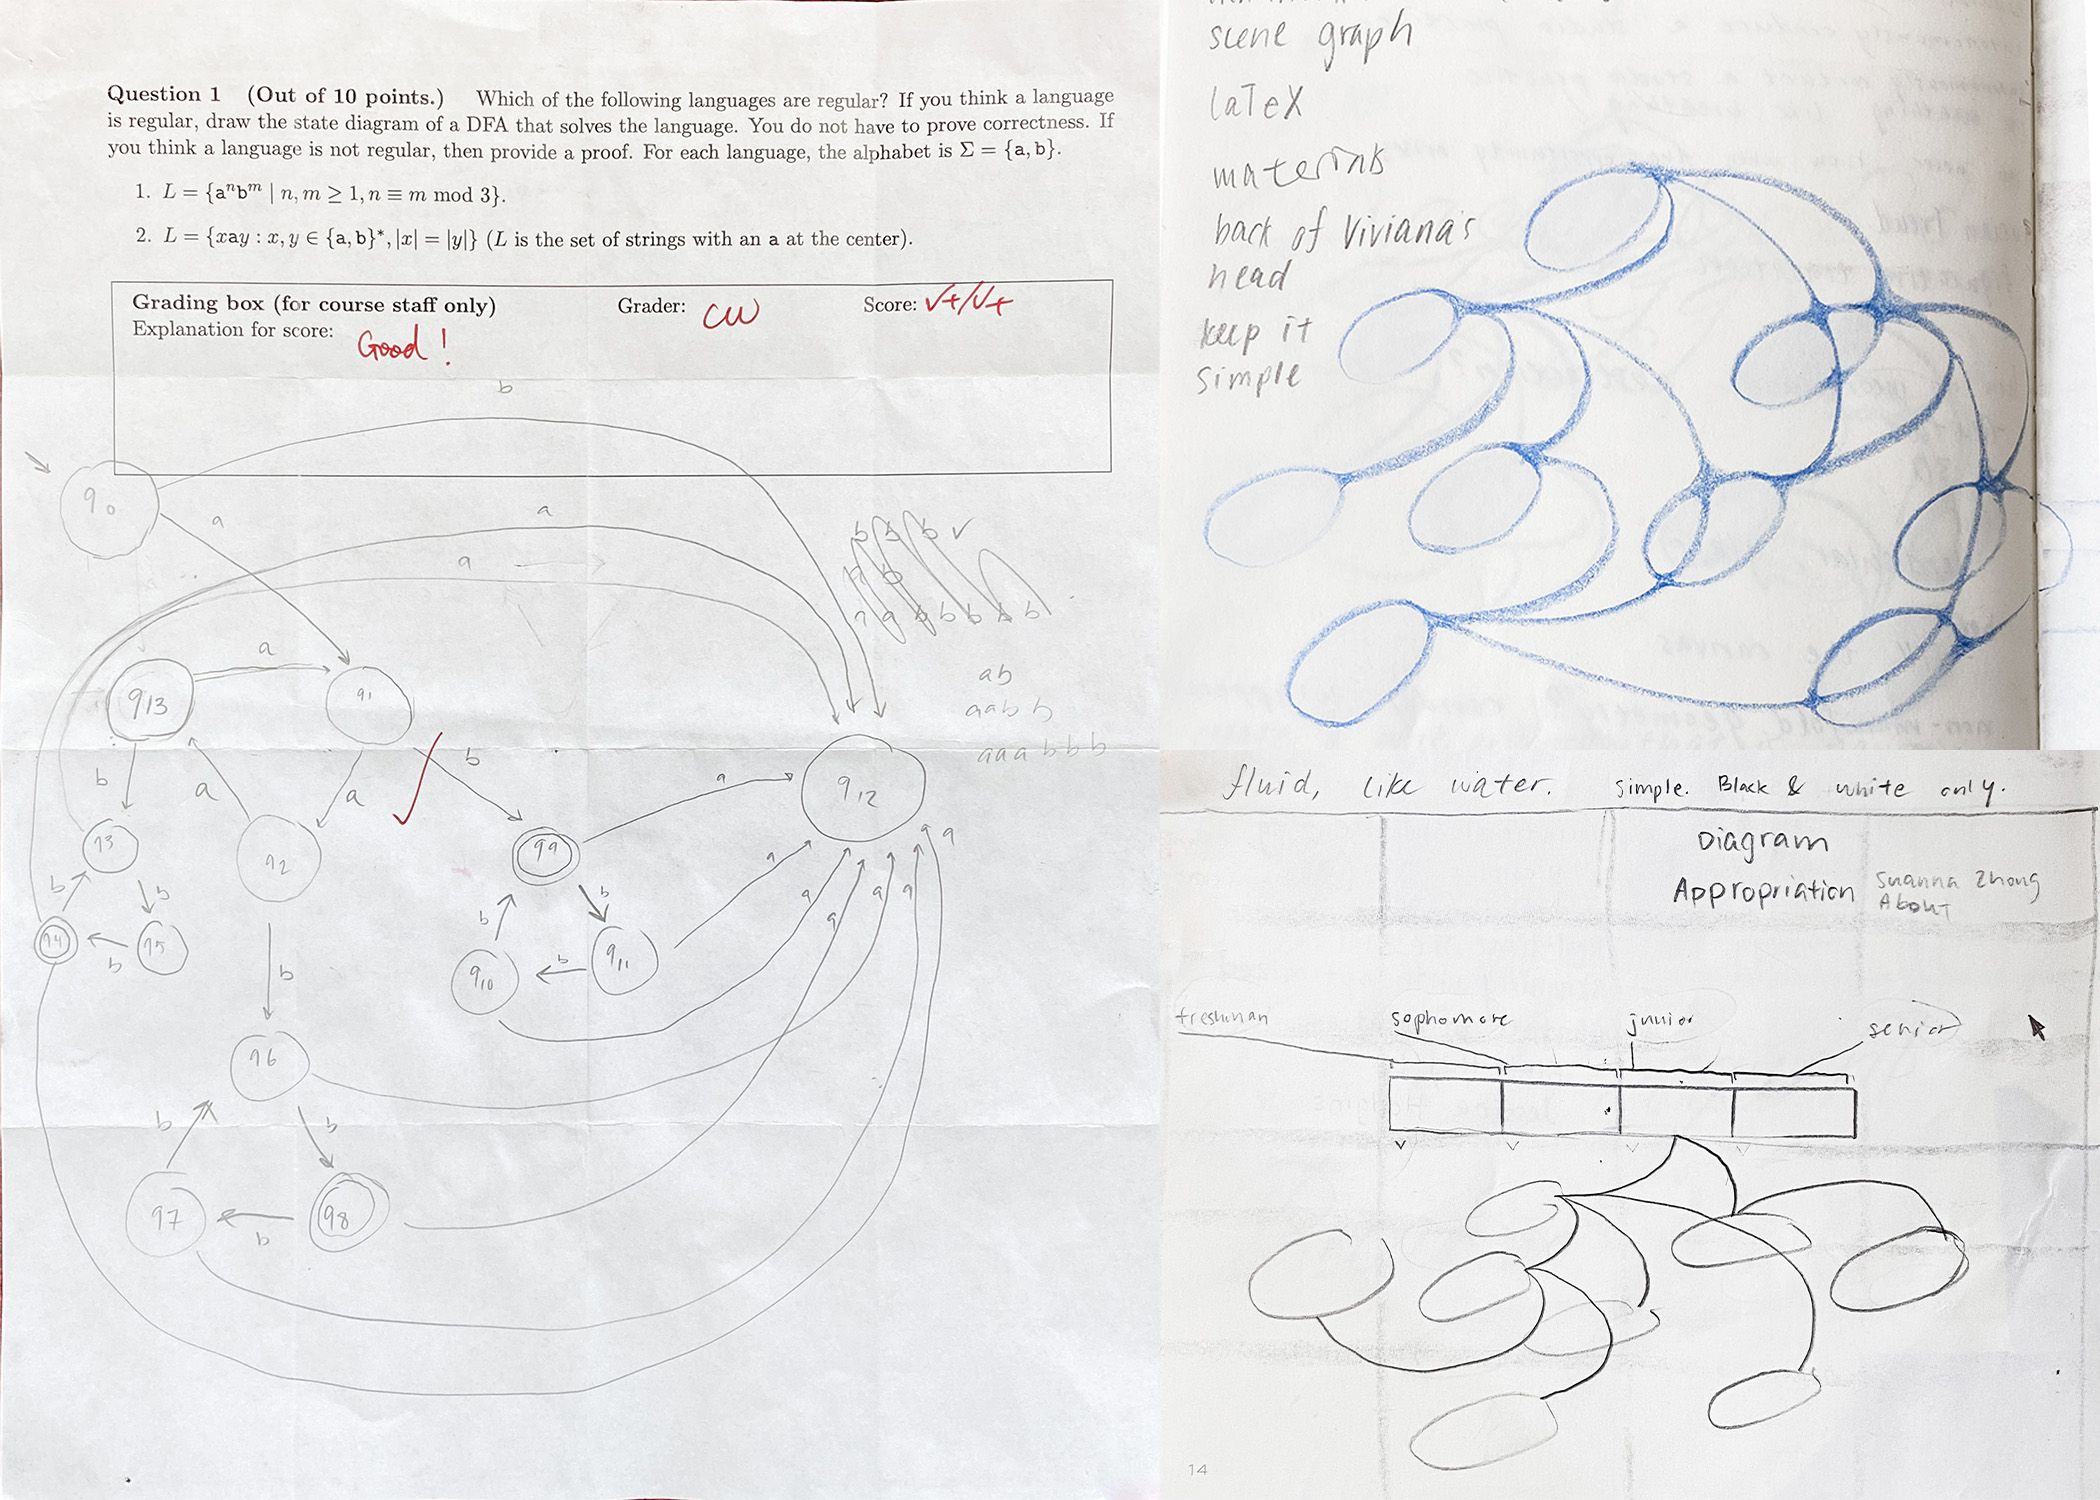 Question 1 (Out of 10 points.) Which of the following languages are regular? If you think a language
is regular, draw the state diagram of a DFA that solves the language. You do not have to prove correctness. If
you think a language is not regular, then provide a proof. For each language, the alphabet is Σ = {a, b}.
1. L = {aⁿbᵐ | n, m ≥ 1, n ≡ m mod 3}.
2. L = {xay : x, y ∈ {a, b}*, |x| = |y|} (L is the set of strings with an a at the center).
Grading box (for course staff only) Grader: CW Score: √+/√+
Explanation for score: Good!
b
q0
a
a
a
b b b ✓
b
b b b b
ab
aabb
aaabbb
q13
a
q1
b
a
a
b
a
q12
q3
q2
q9
a
a
b
b
b
b
a
a
a
a
q4
b
q5
q10
b
q11
b
q6
b
b
q7
b
q8
scene graph
laTeX
back of Viviana's
head
keep it
simple
fluid, like water. simple. Black & white only.
Diagram
Appropriation
Suanna Zhong
About
freshman
sophomore
junior
senior
14